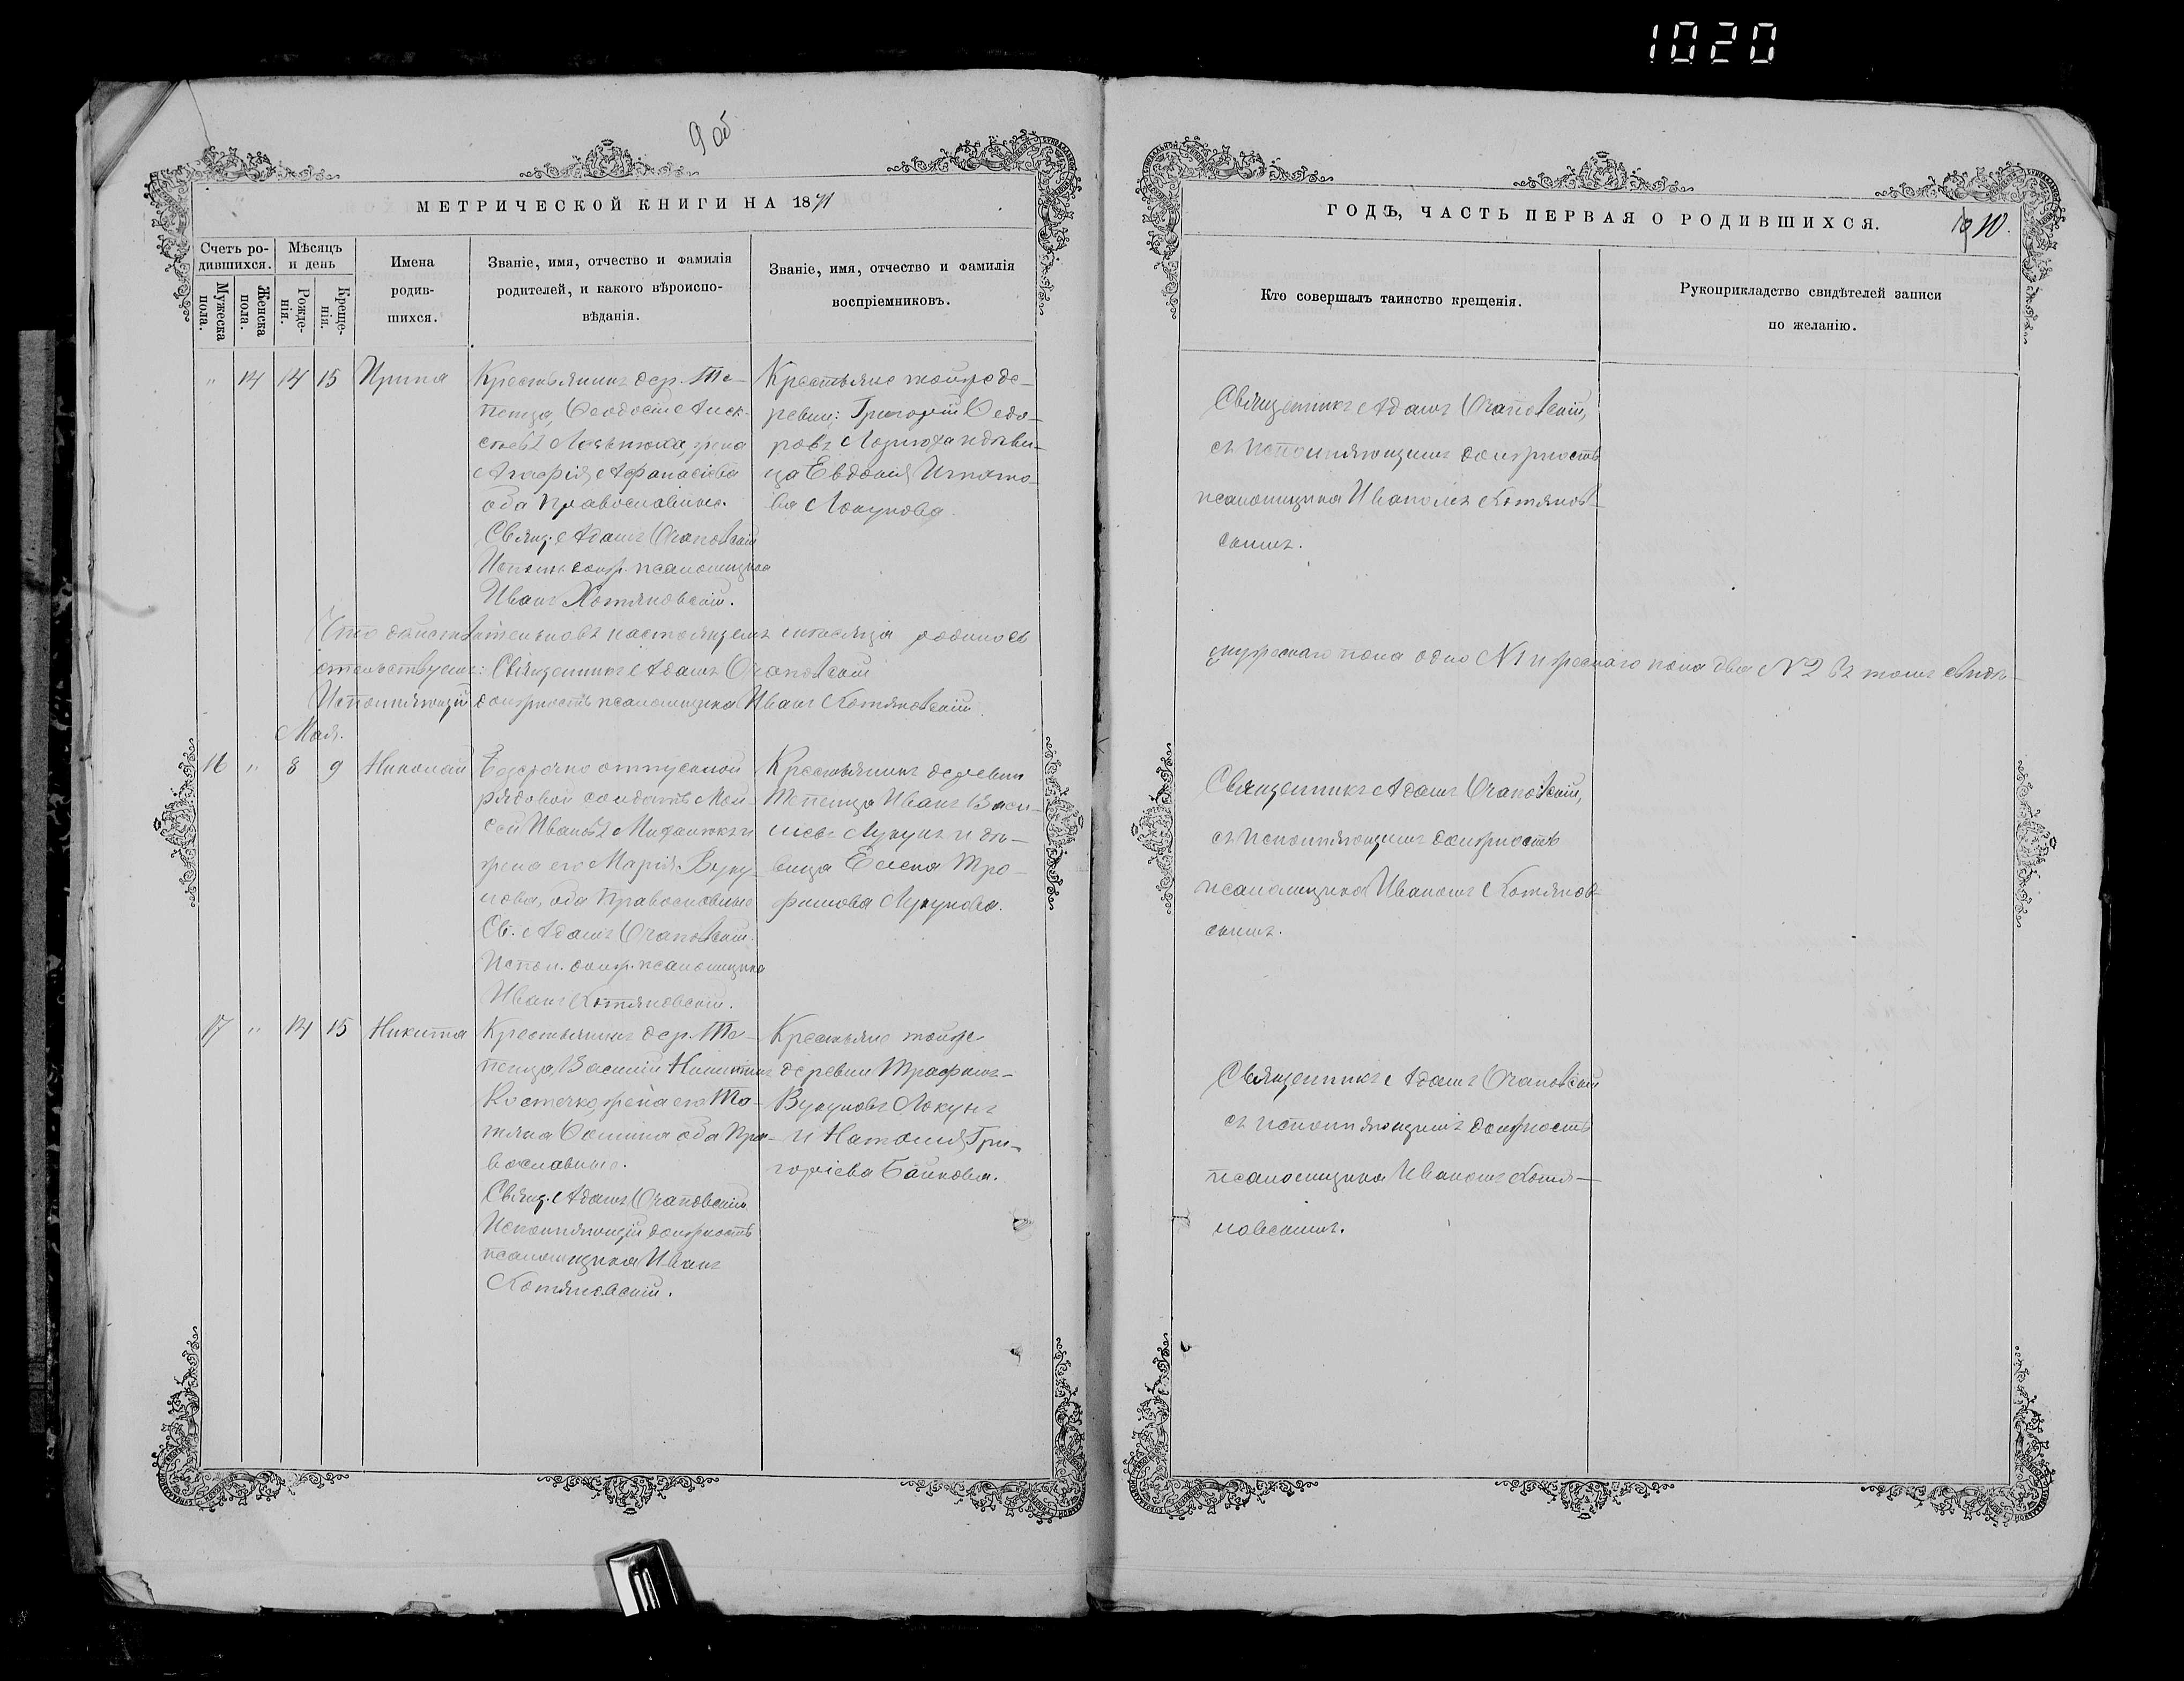 1020
9 об.
МЕТРИЧЕСКОЙ КНИГИ НА 1871
Счетъ ро-
дившихся.
Мѣсяцъ
и день
Мужеска
пола.
Женска
пола.
Рожде-
нія.
Креще-
нія.
Имена
родив-
шихся.
Званіе, имя, отчество и фамилія
родителей, и какого вѣроиспо-
вѣданія.
Званіе, имя, отчество и фамилія
воспріемниковъ.
" 14 14 15 Ирина
Крестьянинъ дер. Те-
пенца, Ѳеодосій Алек-
жена
Агафія Афанасіева
оба православные.
Свящ. Адамъ
Исполн. долж. псаломщика
Иванъ Котяновскій.
Крестьяне тойже де-
ревни: Григорій Ѳедо-
ровъ и дѣви-
ца Евдокія Игнато-
ва
Что дѣйствительно въ настоящемъ мѣсяцѣ родилось
стельствуемъ: Священникъ Адамъ
Исполняющій должность псаломщика Иванъ Котяновскій
Мая.
16 " 8 9 Николай
Безсрочно отпускной
рядовой солдатъ Мой-
сей Ивановъ и
жена его Марія Вуку-
лова, оба православные
Св. Адамъ
Испол. долж. псаломщика
Иванъ Котяновскій.
Крестьянинъ деревни
Тепенца Иванъ Васи-
льевъ и дѣ-
вица Елена Тро-
фимова
17 " 14 15 Никита
Крестьянинъ дер. Те-
пенца, Василій Никитинъ
Костечко, жена его Та-
тяна Ѳомина оба пра-
вославные.
Свящ. Адамъ
Исполняющій должность
псаломщика Иванъ
Котяновскій.
Крестьяне тойже
деревни Трофимъ
Вукуловъ
и Наталія Гри-
горіева Байкова.
ГОДЪ, ЧАСТЬ ПЕРВАЯ О РОДИВШИХСЯ.
10.
Кто совершалъ таинство крещенія.
Рукоприкладство свидѣтелей записи
по желанію.
Священникъ Адамъ
съ исполняющимъ должность
псаломщика Иваномъ Котянов-
скимъ.
мужескаго пола одно № 1 и женскаго пола два № 2 въ томъ свидѣ-
Священникъ Адамъ
съ исполняющимъ должность
псаломщика Иваномъ Котянов-
скимъ.
Священникъ Адамъ
съ исполняющимъ должность
псаломщика Иваномъ Котя-
новскимъ.